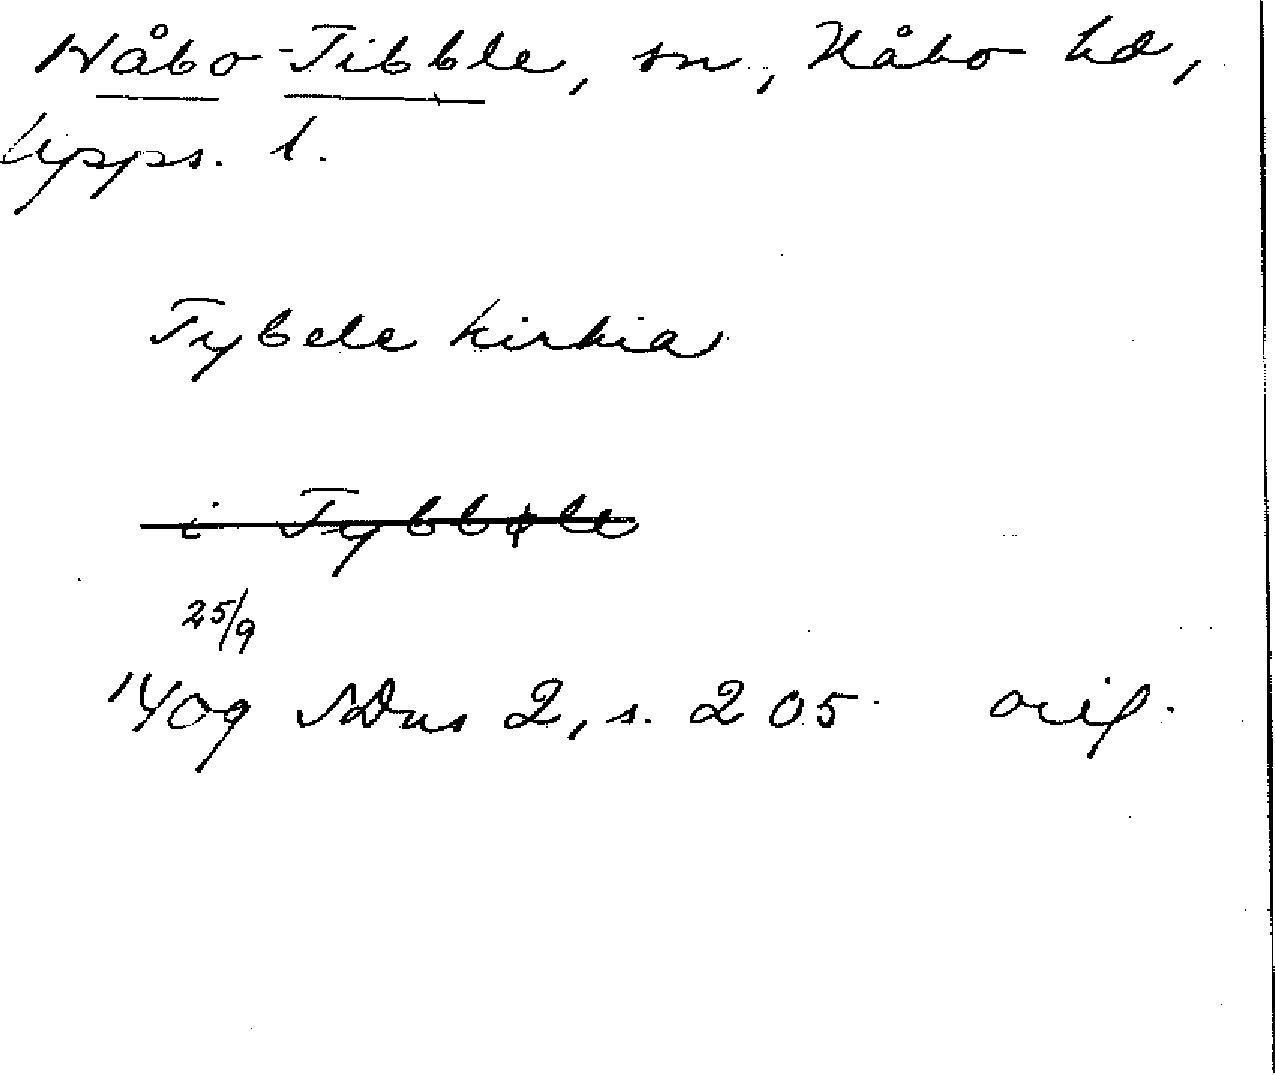 Håbo-Tibble, sn, Håbo hd,
Upps. l.
Tybele kirkia
i Tybbøle
25/9
1409 SDns 2, s. 205 orig.